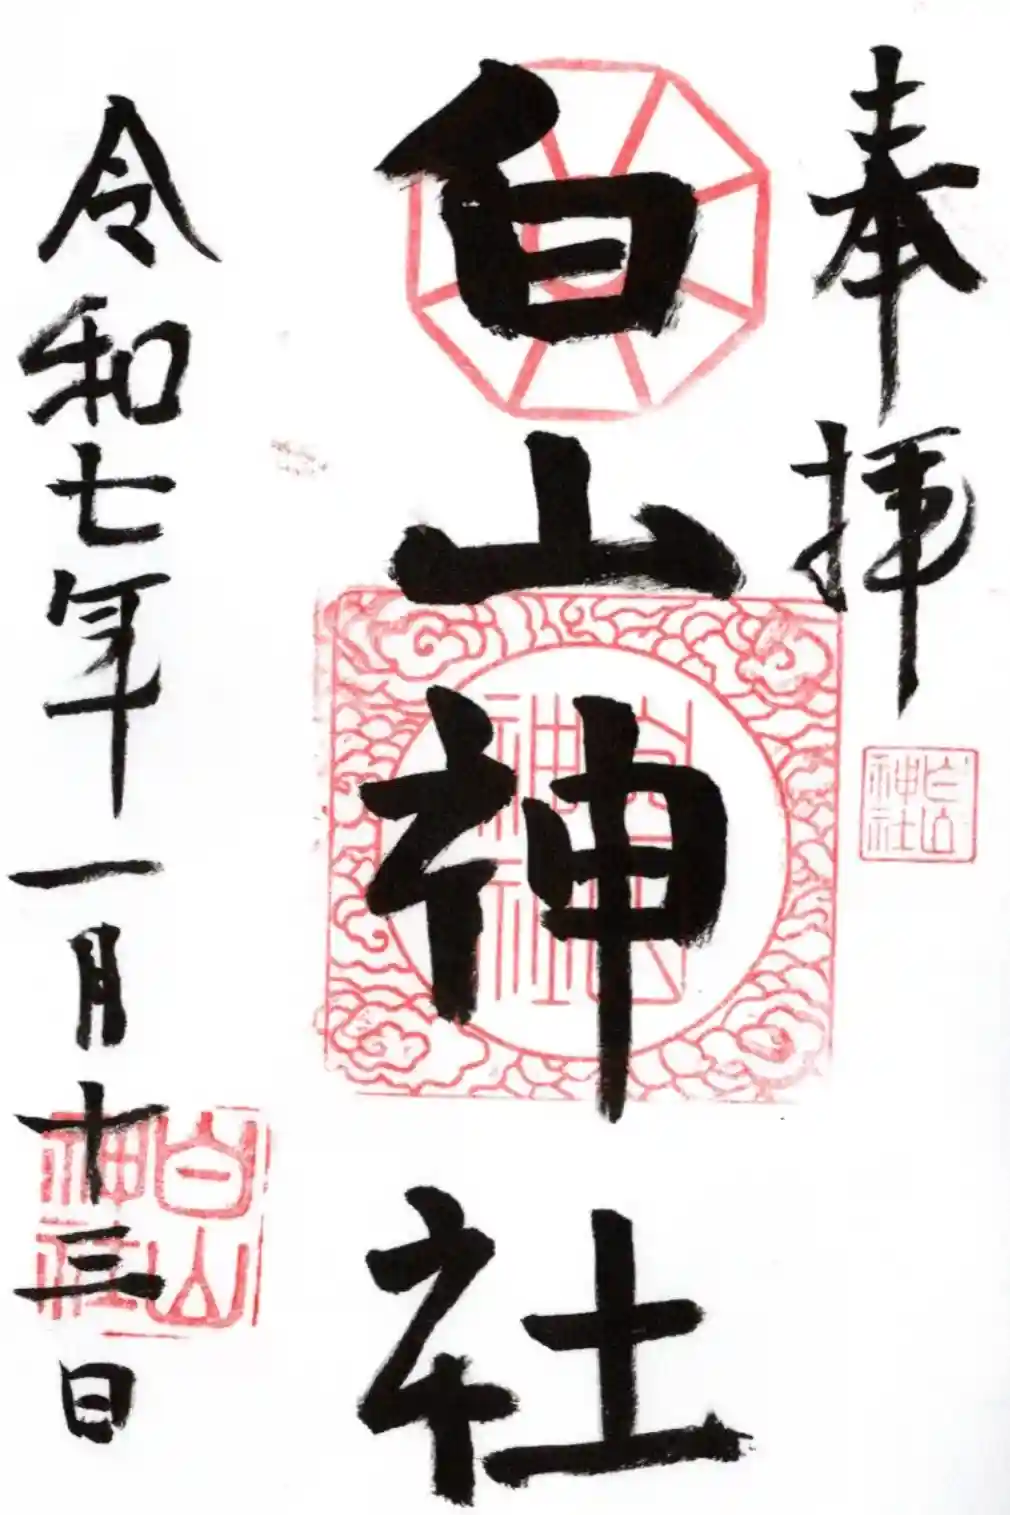 奉拝
白山神社
白山神社
白山神社
白山神社
令和七年一月十三日